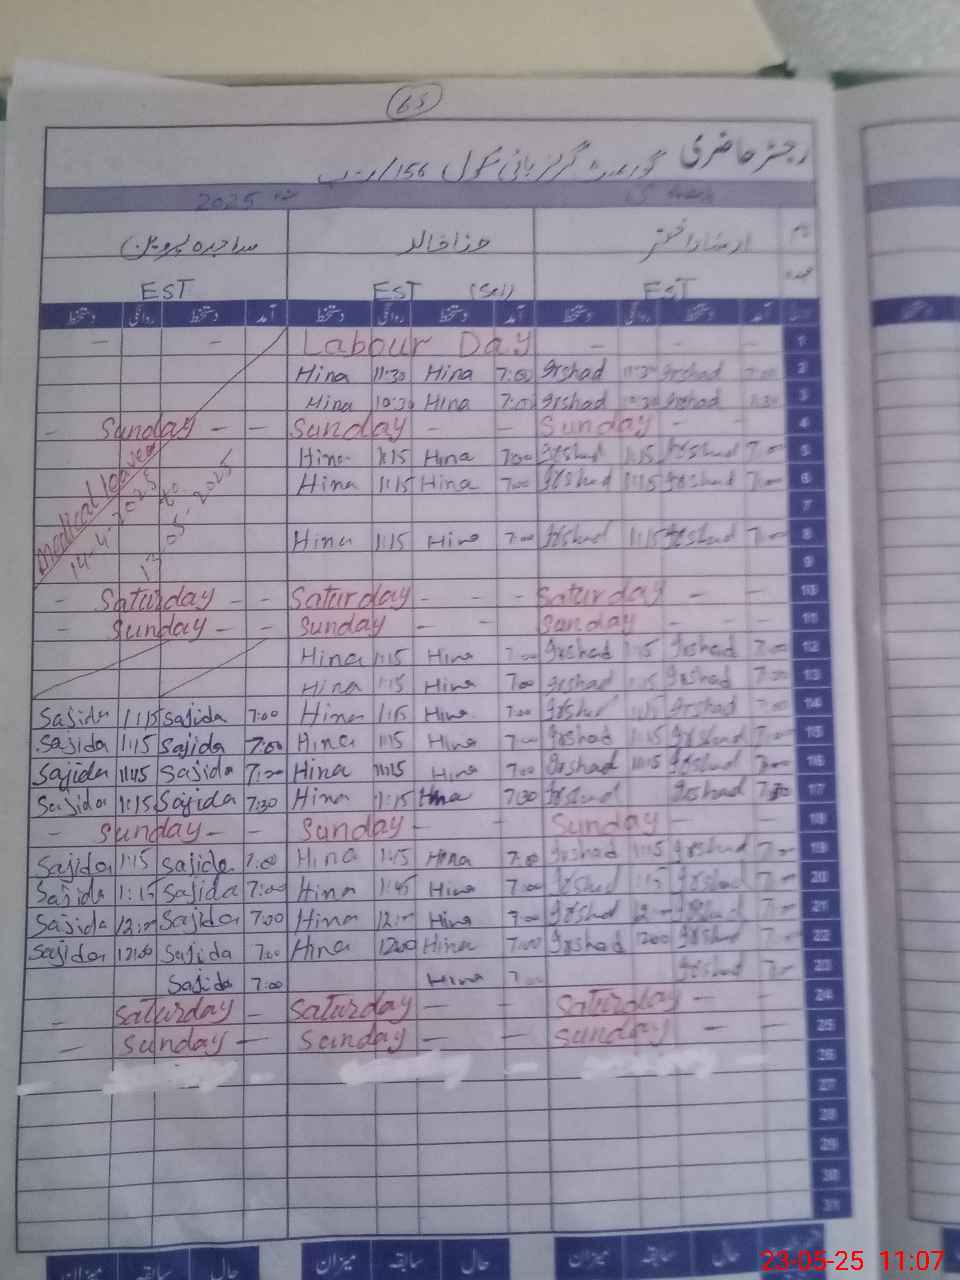 65
رجسٹر حاضری گورنمنٹ گرلز ہائی سکول 156/ر-ب
2025
ارشاد اختر حنا خالد ساجدہ پروین
عہدہ EST EST (Sci) EST
آمد دستخط روانگی دستخط آمد دستخط روانگی دستخط آمد دستخط روانگی دستخط
- - Labour Day - - - 1
Hina 11:30 Hina 7:00 Irshad 11:30 Irshad 7:00 2
Hina 10:30 Hina 7:00 Irshad 10:30 Irshad 3
- Sunday - - Sunday - - Sunday - - 4
Hina 1:15 Hina 7:00 Irshad 1:15 Irshad 7:00 5
Hina 1:15 Hina 7:00 Irshad 1:15 Irshad 7:00 6
Medical leave
14-4-2025 to
13-05-2025
7
Hina 1:15 Hina 7:00 Irshad 1:15 Irshad 7:00 8
9
- Saturday - - Saturday - - - Saturday - - 10
- Sunday - - Sunday - - Sunday - - 11
Hina 1:15 Hina 7:00 Irshad 1:15 Irshad 7:00 12
Hina 1:15 Hina 7:00 Irshad 1:15 Irshad 7:00 13
Sajida 1:15 Sajida 7:00 Hina 1:15 Hina 7:00 Irshad 1:15 Irshad 7:00 14
Sajida 1:15 Sajida 7:00 Hina 1:15 Hina 7:00 Irshad 1:15 Irshad 7:00 15
Sajida 11:45 Sajida 7:00 Hina Hina 7:00 Irshad Irshad 7:00 16
Sajida 1:15 Sajida 7:30 Hina 1:15 Hina 7:30 Irshad Irshad 7:30 17
- Sunday - - Sunday - - Sunday - - 18
Sajida 1:15 Sajida 7:00 Hina Hina 7:00 Irshad 1:15 Irshad 7:00 19
Sajida 1:15 Sajida 7:00 Hina Hina 7:00 Irshad 1:15 Irshad 7:00 20
Sajida 12:00 Sajida 7:00 Hina 12:00 Hina 7:00 Irshad 12:00 Irshad 7:00 21
Sajida 12:00 Sajida 7:00 Hina 12:00 Hina 7:00 Irshad 12:00 Irshad 7:00 22
Sajida 7:00 Hina 7:00 Irshad 7:00 23
- Saturday - Saturday - - Saturday - - 24
- Sunday - Sunday - - Sunday - - 25
26
27
28
29
30
31
حال سابقہ میزان حال سابقہ میزان حال سابقہ میزان
23-05-25 11:07